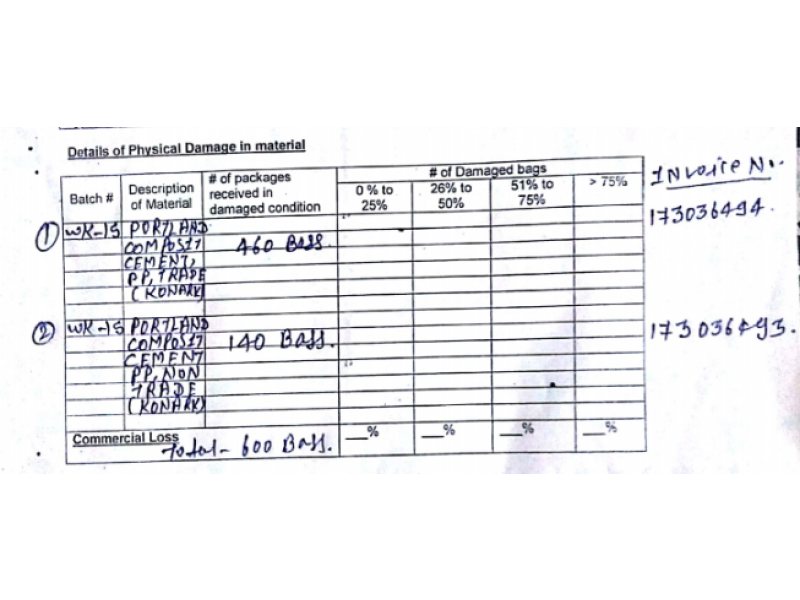 Details of Physical Damage in material
Batch # Description of Material # of packages received in damaged condition # of Damaged bags
0 % to 25% 26% to 50% 51% to 75% > 75%
Invoice No.
① WK-15 PORTLAND 173036494.
COMPOSIT 460 Bags
CEMENT,
PP, TRADE
(KONARK)
② WK-15 PORTLAND 173036493.
COMPOSIT 140 Bags.
CEMENT
PP, NON
TRADE
(KONARK)
Commercial Loss __% __% __% __%
Total- 600 Bags.